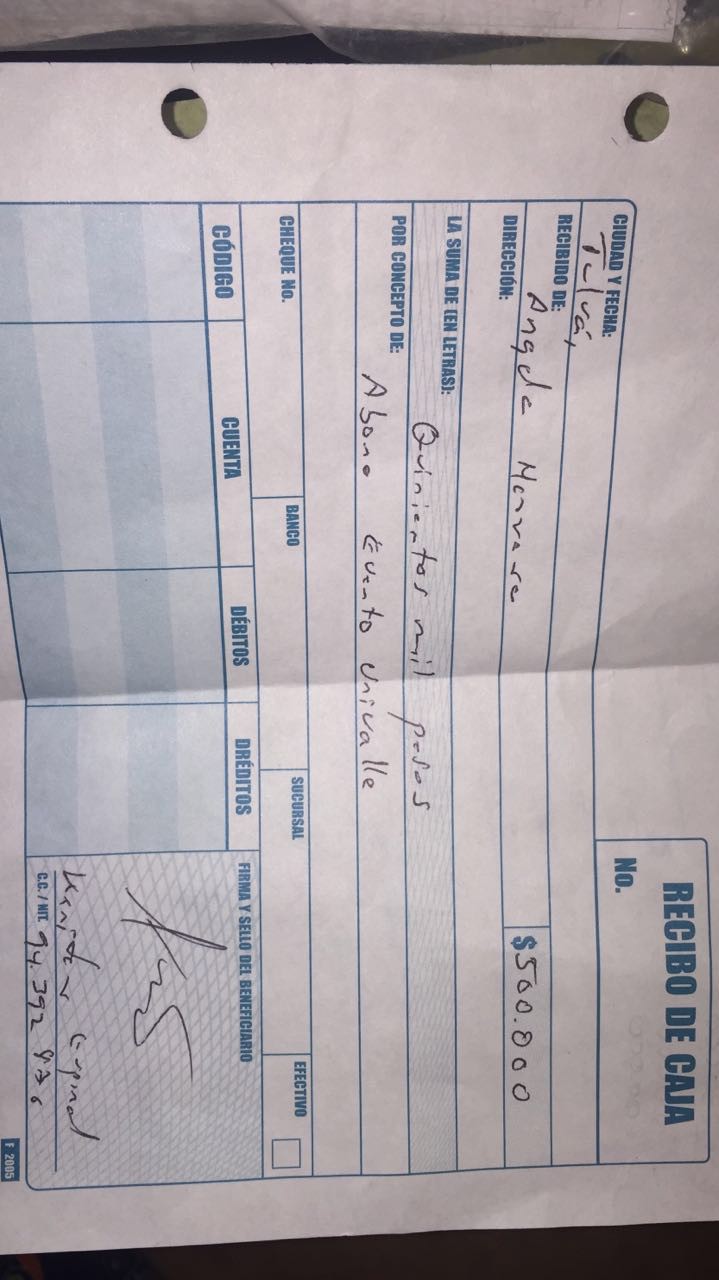 RECIBO DE CAJA
No.
CIUDAD Y FECHA:
Tuluá,
RECIBIDO DE:
$ 500.000
DIRECCIÓN:
LA SUMA DE (EN LETRAS):
Quinientos mil pesos
POR CONCEPTO DE:
Abono Evento Univalle
CHEQUE No. BANCO SUCURSAL EFECTIVO
CÓDIGO CUENTA DÉBITOS DRÉDITOS FIRMA Y SELLO DEL BENEFICIARIO
C.C. / NIT. 94.392
F 2005